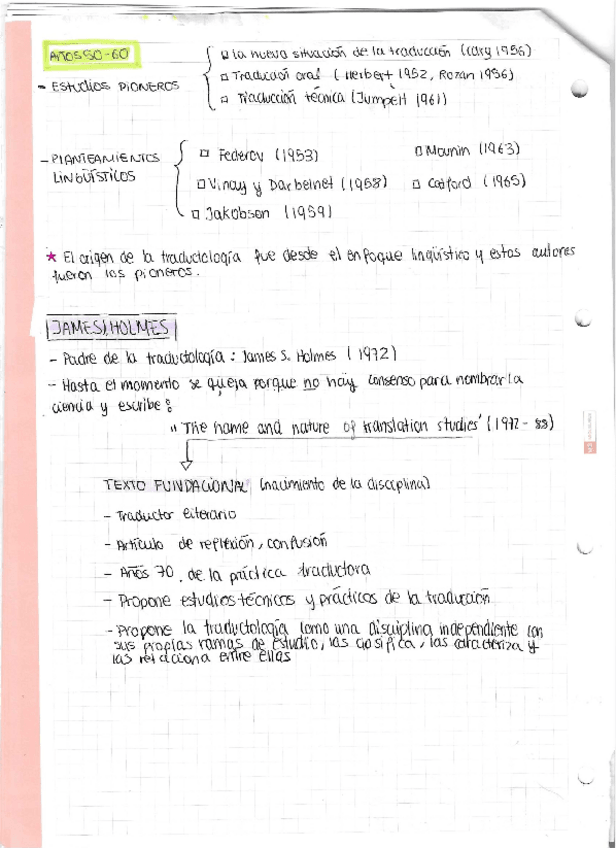 AÑOS 50-60
- Estudios PIONEROS
□ La nueva situación de la traducción (Cary 1956)
□ Traducción oral (Herbert 1952, Rozan 1956)
□ Traducción técnica (Jumpelt 1961)
- PLANTEAMIENTOS
LINGÜÍSTICOS
□ Federov (1953)
□ Vinay y Darbelnet (1958)
□ Jakobson (1959)
□ Mounin (1963)
□ Catford (1965)
★ El origen de la traductología fue desde el enfoque lingüístico y estos autores
fueron los pioneros.
JAMES HOLMES
- Padre de la traductología: James S. Holmes (1972)
- Hasta el momento se queja porque no hay consenso para nombrar la
ciencia y escribe:
"The name and nature of translation studies" (1972-88)
TEXTO FUNDACIONAL (nacimiento de la disciplina)
- Traductor literario
- Artículo de reflexión, confusión
- Años 70, de la práctica traductora
- Propone estudios técnicos y prácticos de la traducción
- Propone la traductología como una disciplina independiente con
sus propias ramas de estudio, las clasifica, las caracteriza y
las relaciona entre ellas